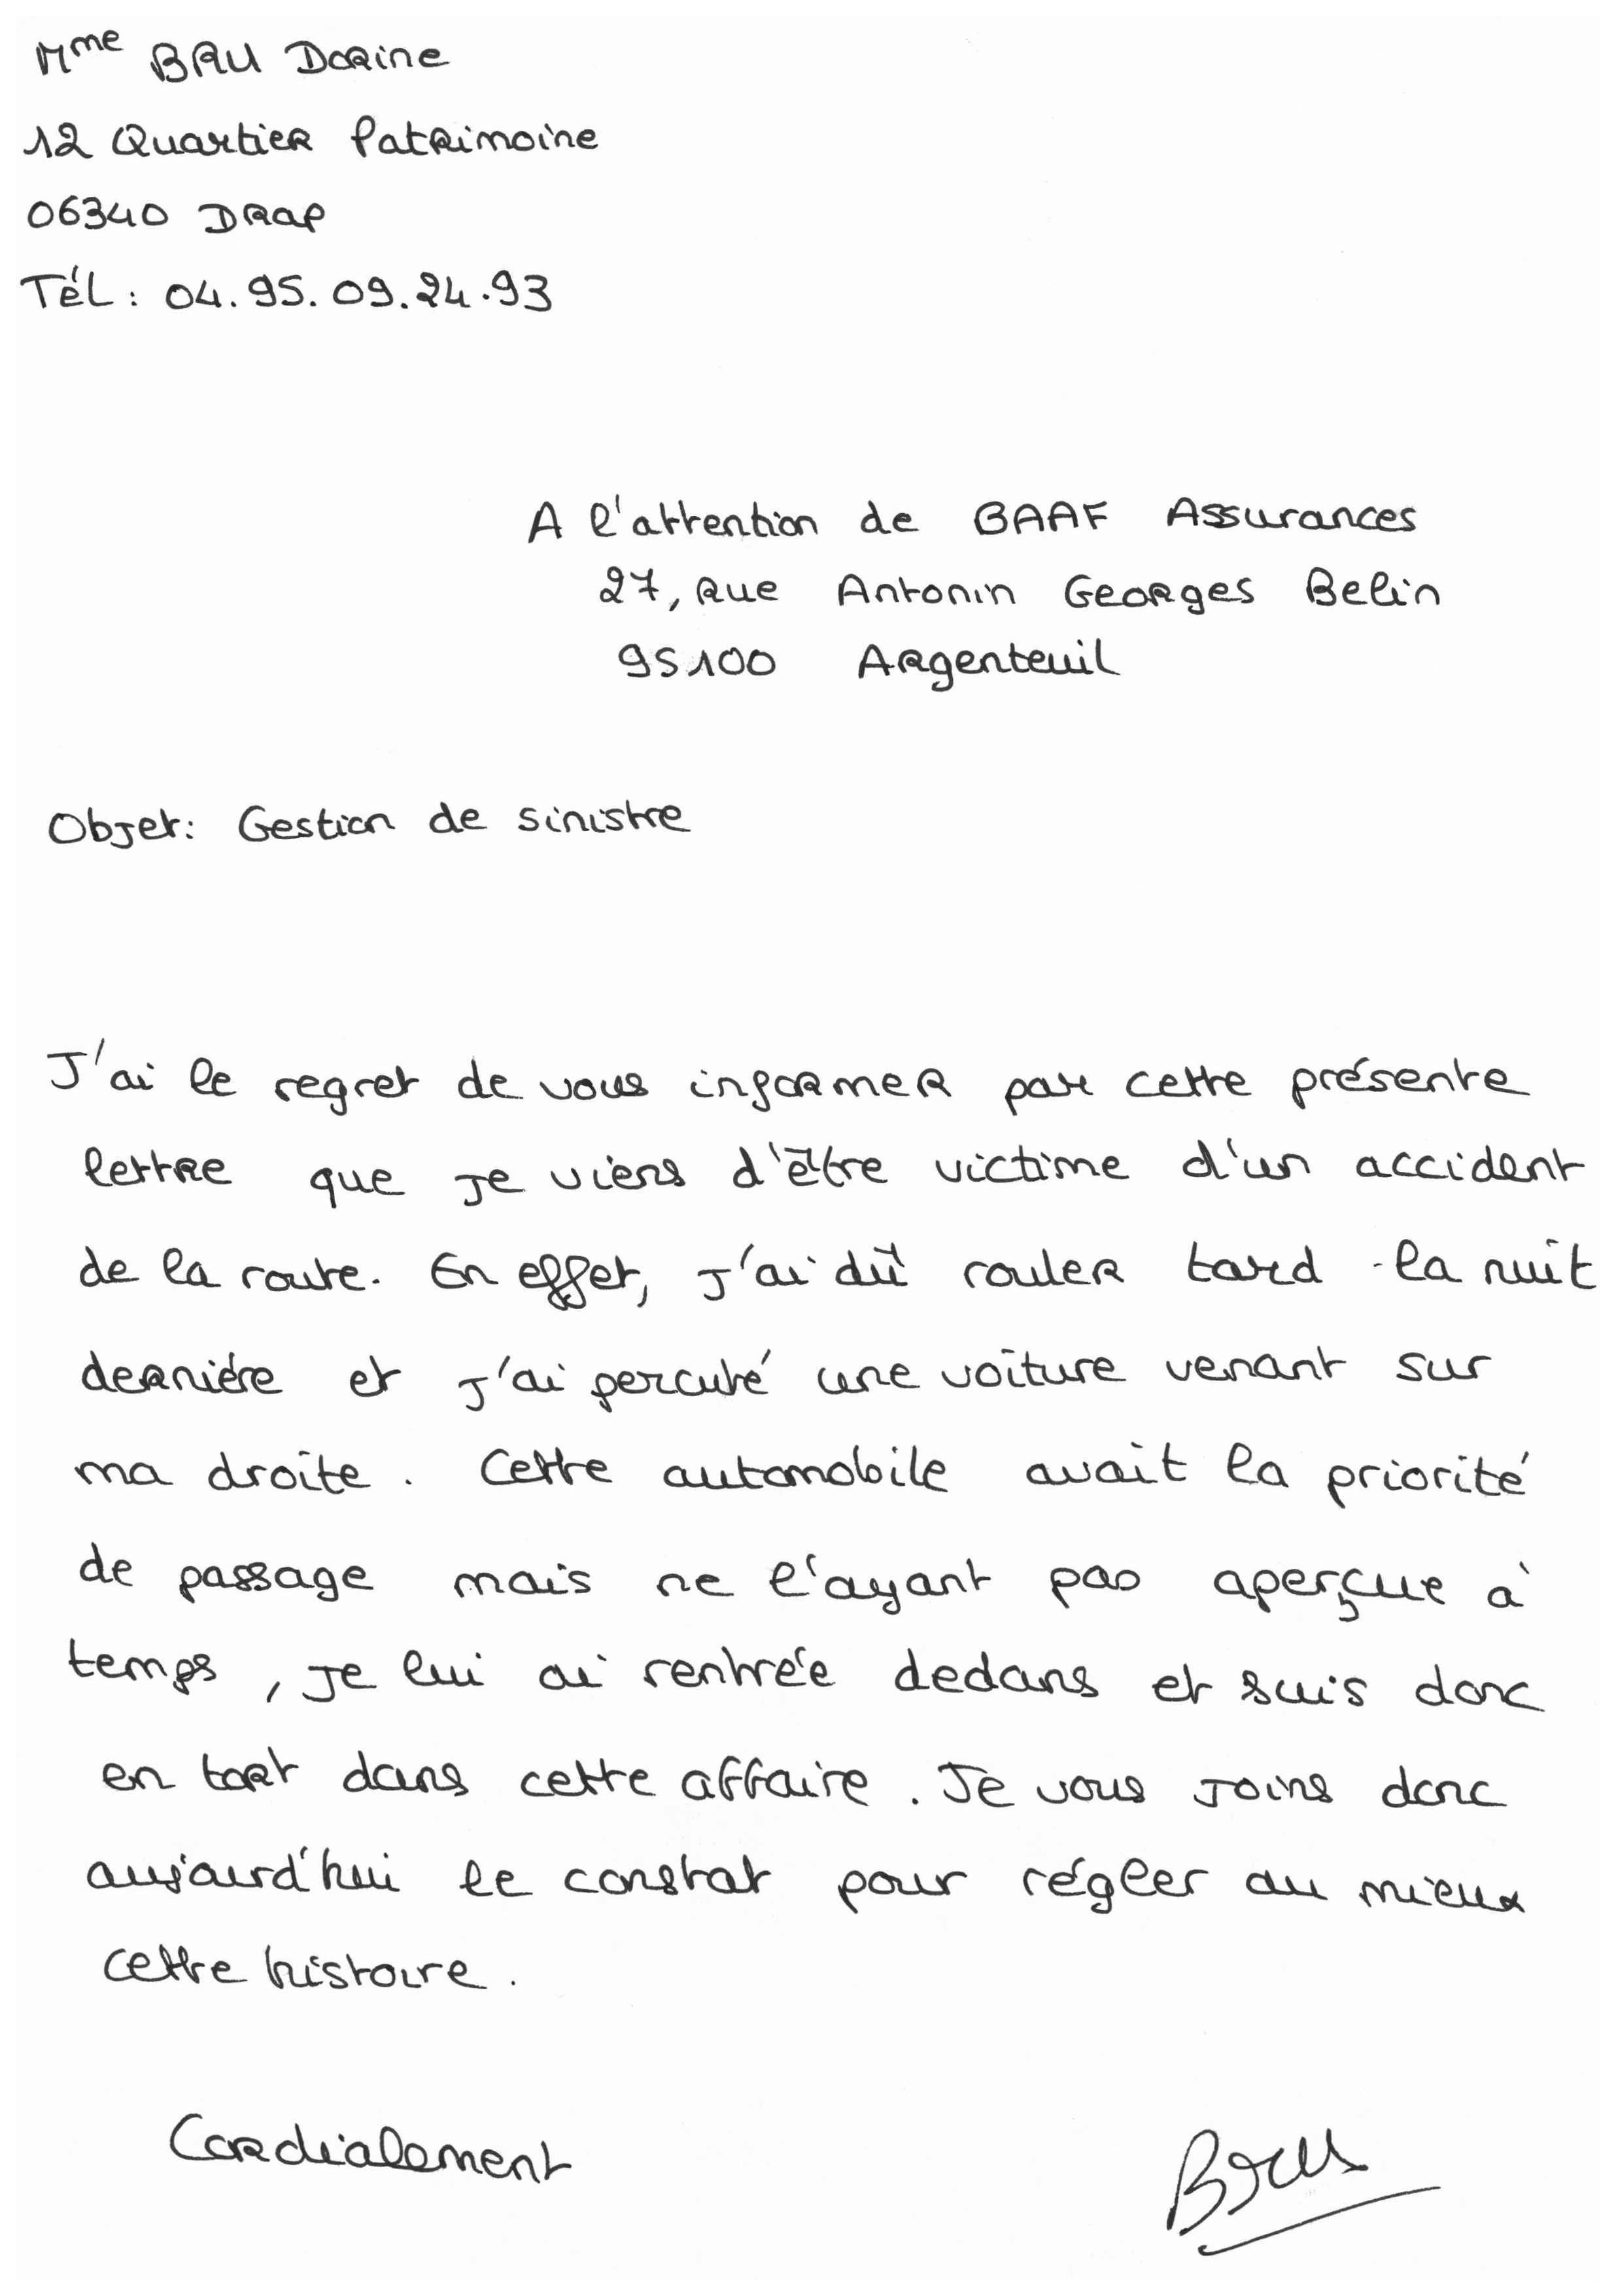 Mme BRU Dorine
12 Quartier Patrimoine
06340 DRAP
Tél : 04.95.09.24.93
A l'attention de BAAF Assurances
27, Rue Antonin Georges Belin
95100 Argenteuil
Objet : Gestion de sinistre
J'ai le regret de vous informer par cette présente
lettre que je viens d'être victime d'un accident
de la route. En effet, j'ai dû rouler tard la nuit
dernière et j'ai percuté une voiture venant sur
ma droite. Cette automobile avait la priorité
de passage mais ne l'ayant pas aperçue à
temps, je lui ai rentrée dedans et suis donc
en tort dans cette affaire. Je vous joins donc
aujourd'hui le constat pour régler au mieux
cette histoire.
Cordialement
Bru